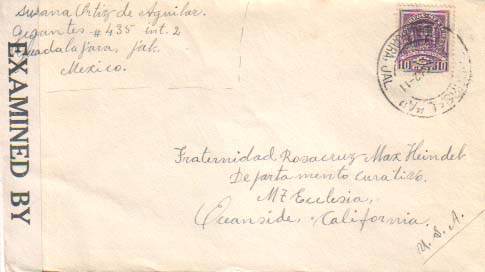 Susana Ortiz de Aguilar.
Gigantes #435 int. 2
Guadalajara, Jal.
Mexico.
EXAMINED BY
10 10
JAL
Fraternidad Rosacruz Max Heindel
Departamento Curativo.
Mt Ecclesia,
Oceanside, California.
U. S. A.